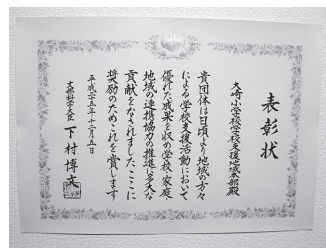 表彰状
大崎小学校学校支援地域本部殿
貴団体は日頃より地域の方々
による学校支援活動において
優れた成果を収め学校・家庭
地域の連携協力の推進に多大な
貢献をなされましたここに
奨励のためこれを賞します
平成二十五年十二月五日
文部科学大臣 下村博文